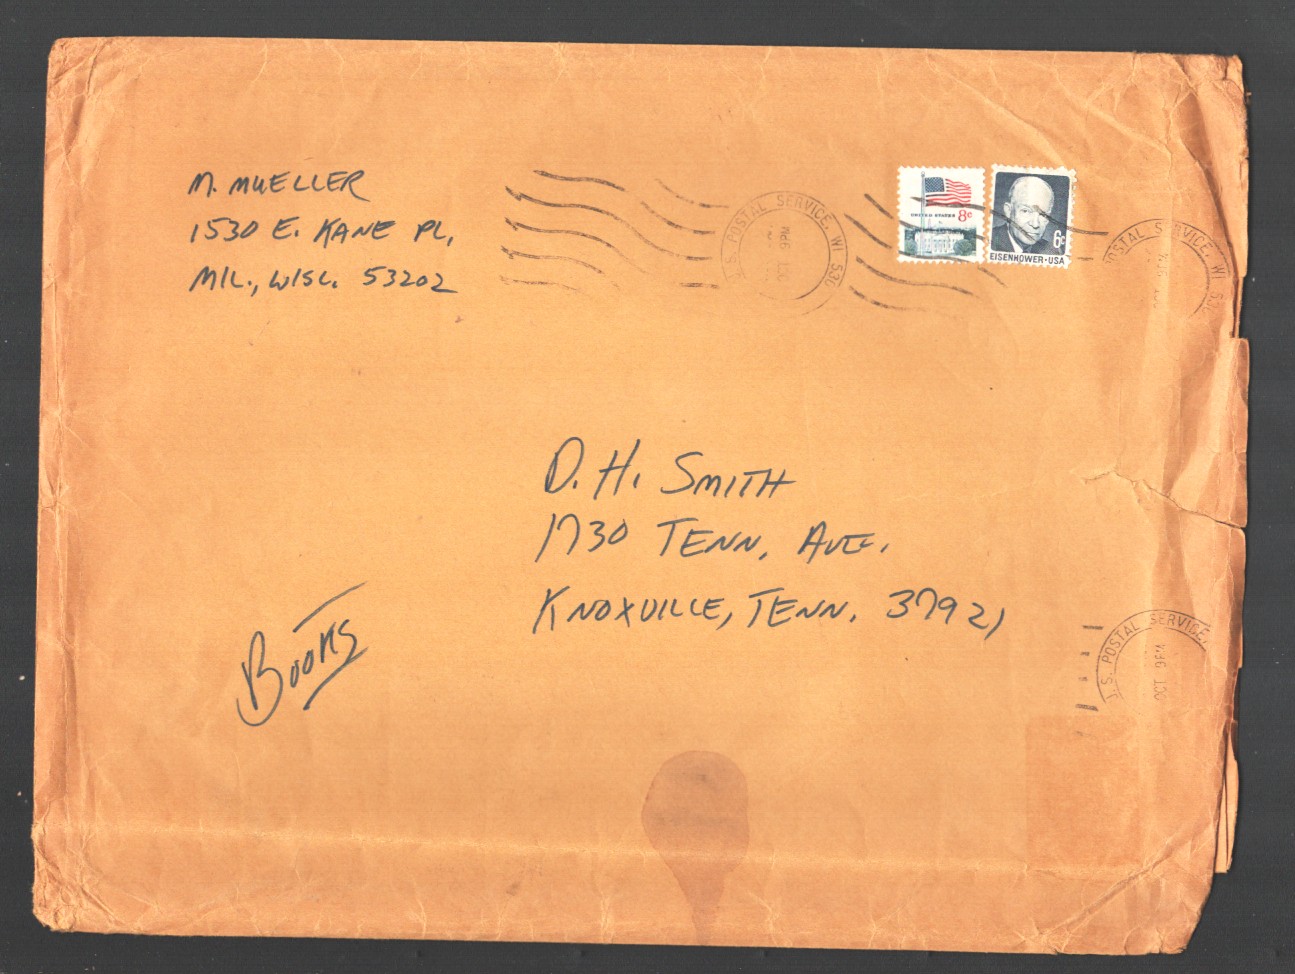 M. MUELLER
1530 E. KANE PL.
MIL., WISC. 53202
U.S. POSTAL SERVICE, WI 530
9PM
UNITED STATES 8c
6c
EISENHOWER·USA
POSTAL SERVICE, WI 53
D. H. SMITH
1730 TENN. AVE.
KNOXVILLE, TENN. 37921
BOOKS
U. S. POSTAL SERVICE,
OCT 9PM